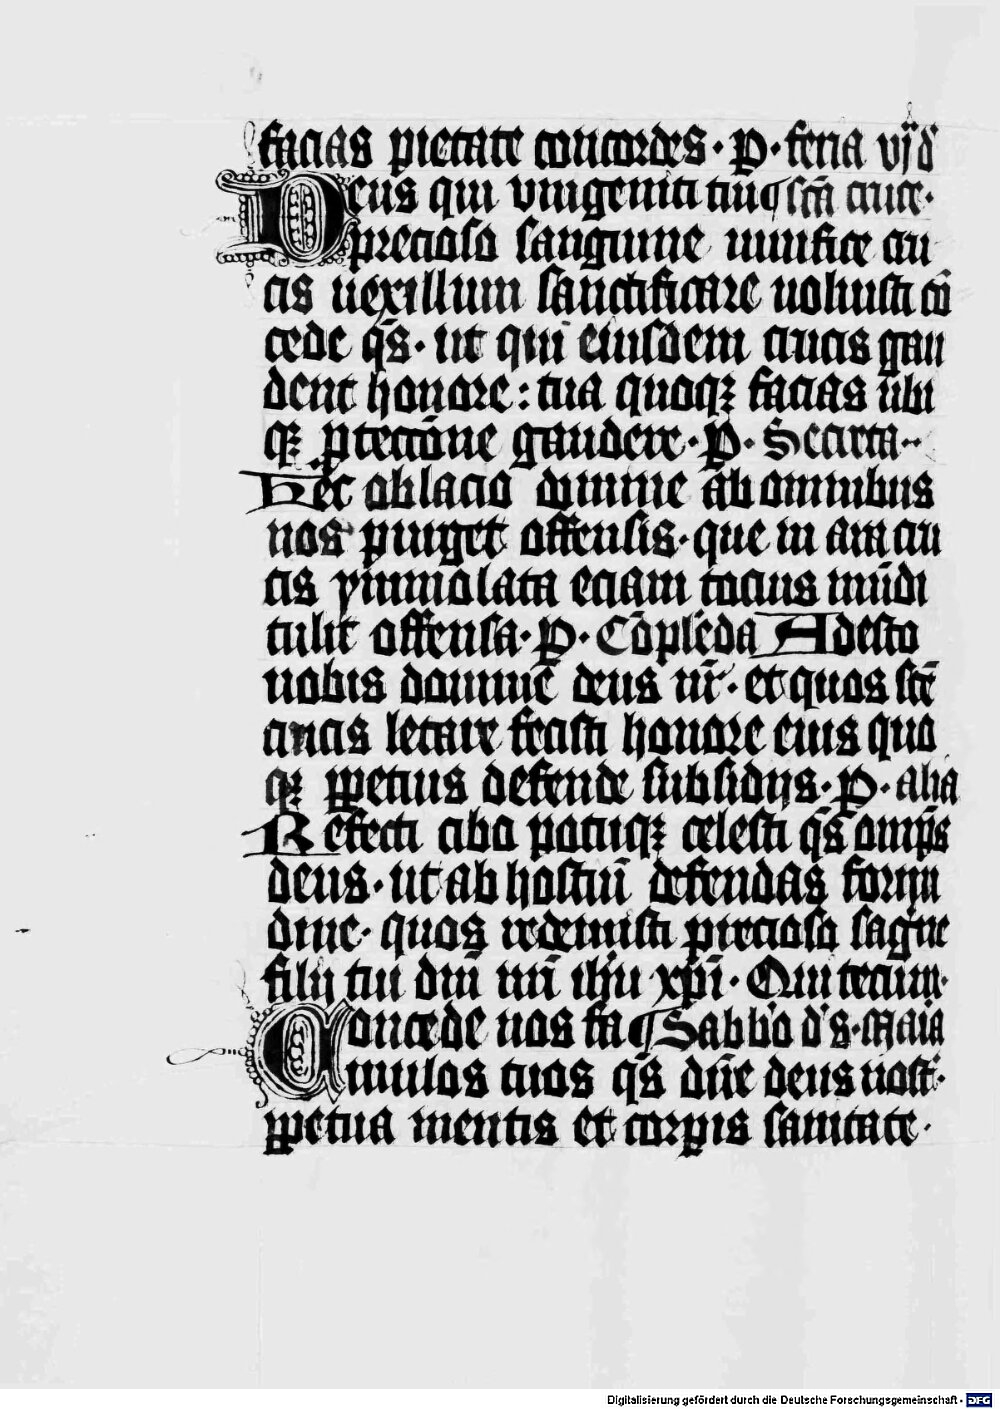 facias pietate concordes · P · feria vj d
Deus qui vnigeniti tui ¶ sc̄a cruce ·
precioso sanguine uiuifice cru
cis uexillum sanctificare uoluisti cō
cede q̄s · ut qui eiusdem crucis gau
dent honore : tua quoqꝫ facias ubi
qꝫ ꝓtectōne gaudere · P · Secreta ··
Hec oblacio domine ab omnibus
nos purget offensis · que in ara cru
cis ymmolata eciam tocius mūdi
tulit offensa · P · Cōplēda Adesto
nobis domine deus nr̄ · et quos scē
crucis letare fecisti honore eius quo
qꝫ ꝑpetuis defende subsidijs · P · alia
Refecti cibo potuqꝫ celesti q̄s omp̄s
deus · ut ab hostiū defendas formi
dine · quos redemisti precioso sāgne
filij tui dn̄i nr̄i ih̄u xp̄i · Qui tecum ·
Concede nos fa ¶ Sabb̄o d' s · maia
amulos tuos q̄s dn̄e deus nost ·
ꝑpetua mentis et corꝑis sanitate ·
Digitalisierung gefördert durch die Deutsche Forschungsgemeinschaft - DFG